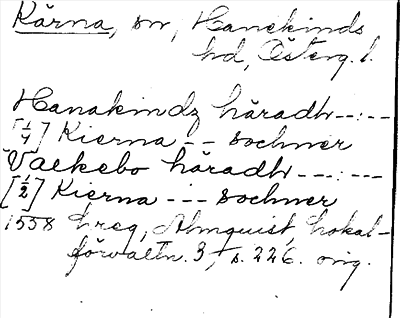 Kärna, sn, Hanekinds
hd, Österg. l.
Hanakindz häradh--:--
[1/4] Kierna -- sochner
Vaekebo häradh ---:---
[1/2] Kierna --- sochner
1558 Almquist, Lokal-
förvaltn. 3, s. 226. orig.